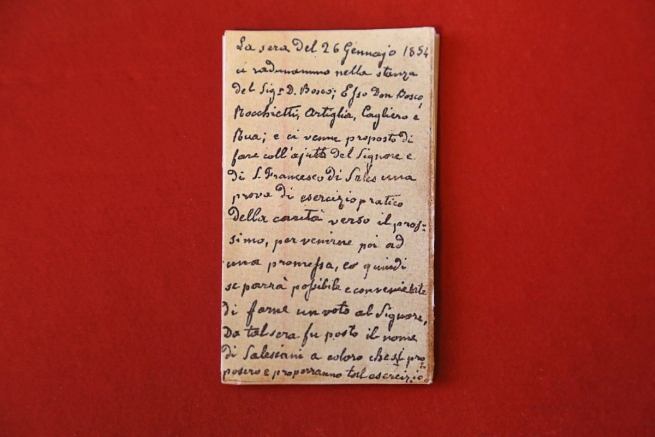 La sera del 26 Gennajo 1854
ci radunammo nella stanza
del Sigr D. Bosco; Esso Don Bosco,
Rocchietti, Artiglia, Cagliero e
Rua; e ci venne proposto di
fare coll'ajuto del Signore e
di S. Francesco di Sales una
prova di esercizio pratico
della carità verso il pros-
simo, per venirne poi ad
una promessa, e quindi
se parrà possibile e conveniente
di farne un voto al Signore,
Da tal sera fu posto il nome
di Salesiani a coloro che si pro-
posero e proporranno tal esercizio.